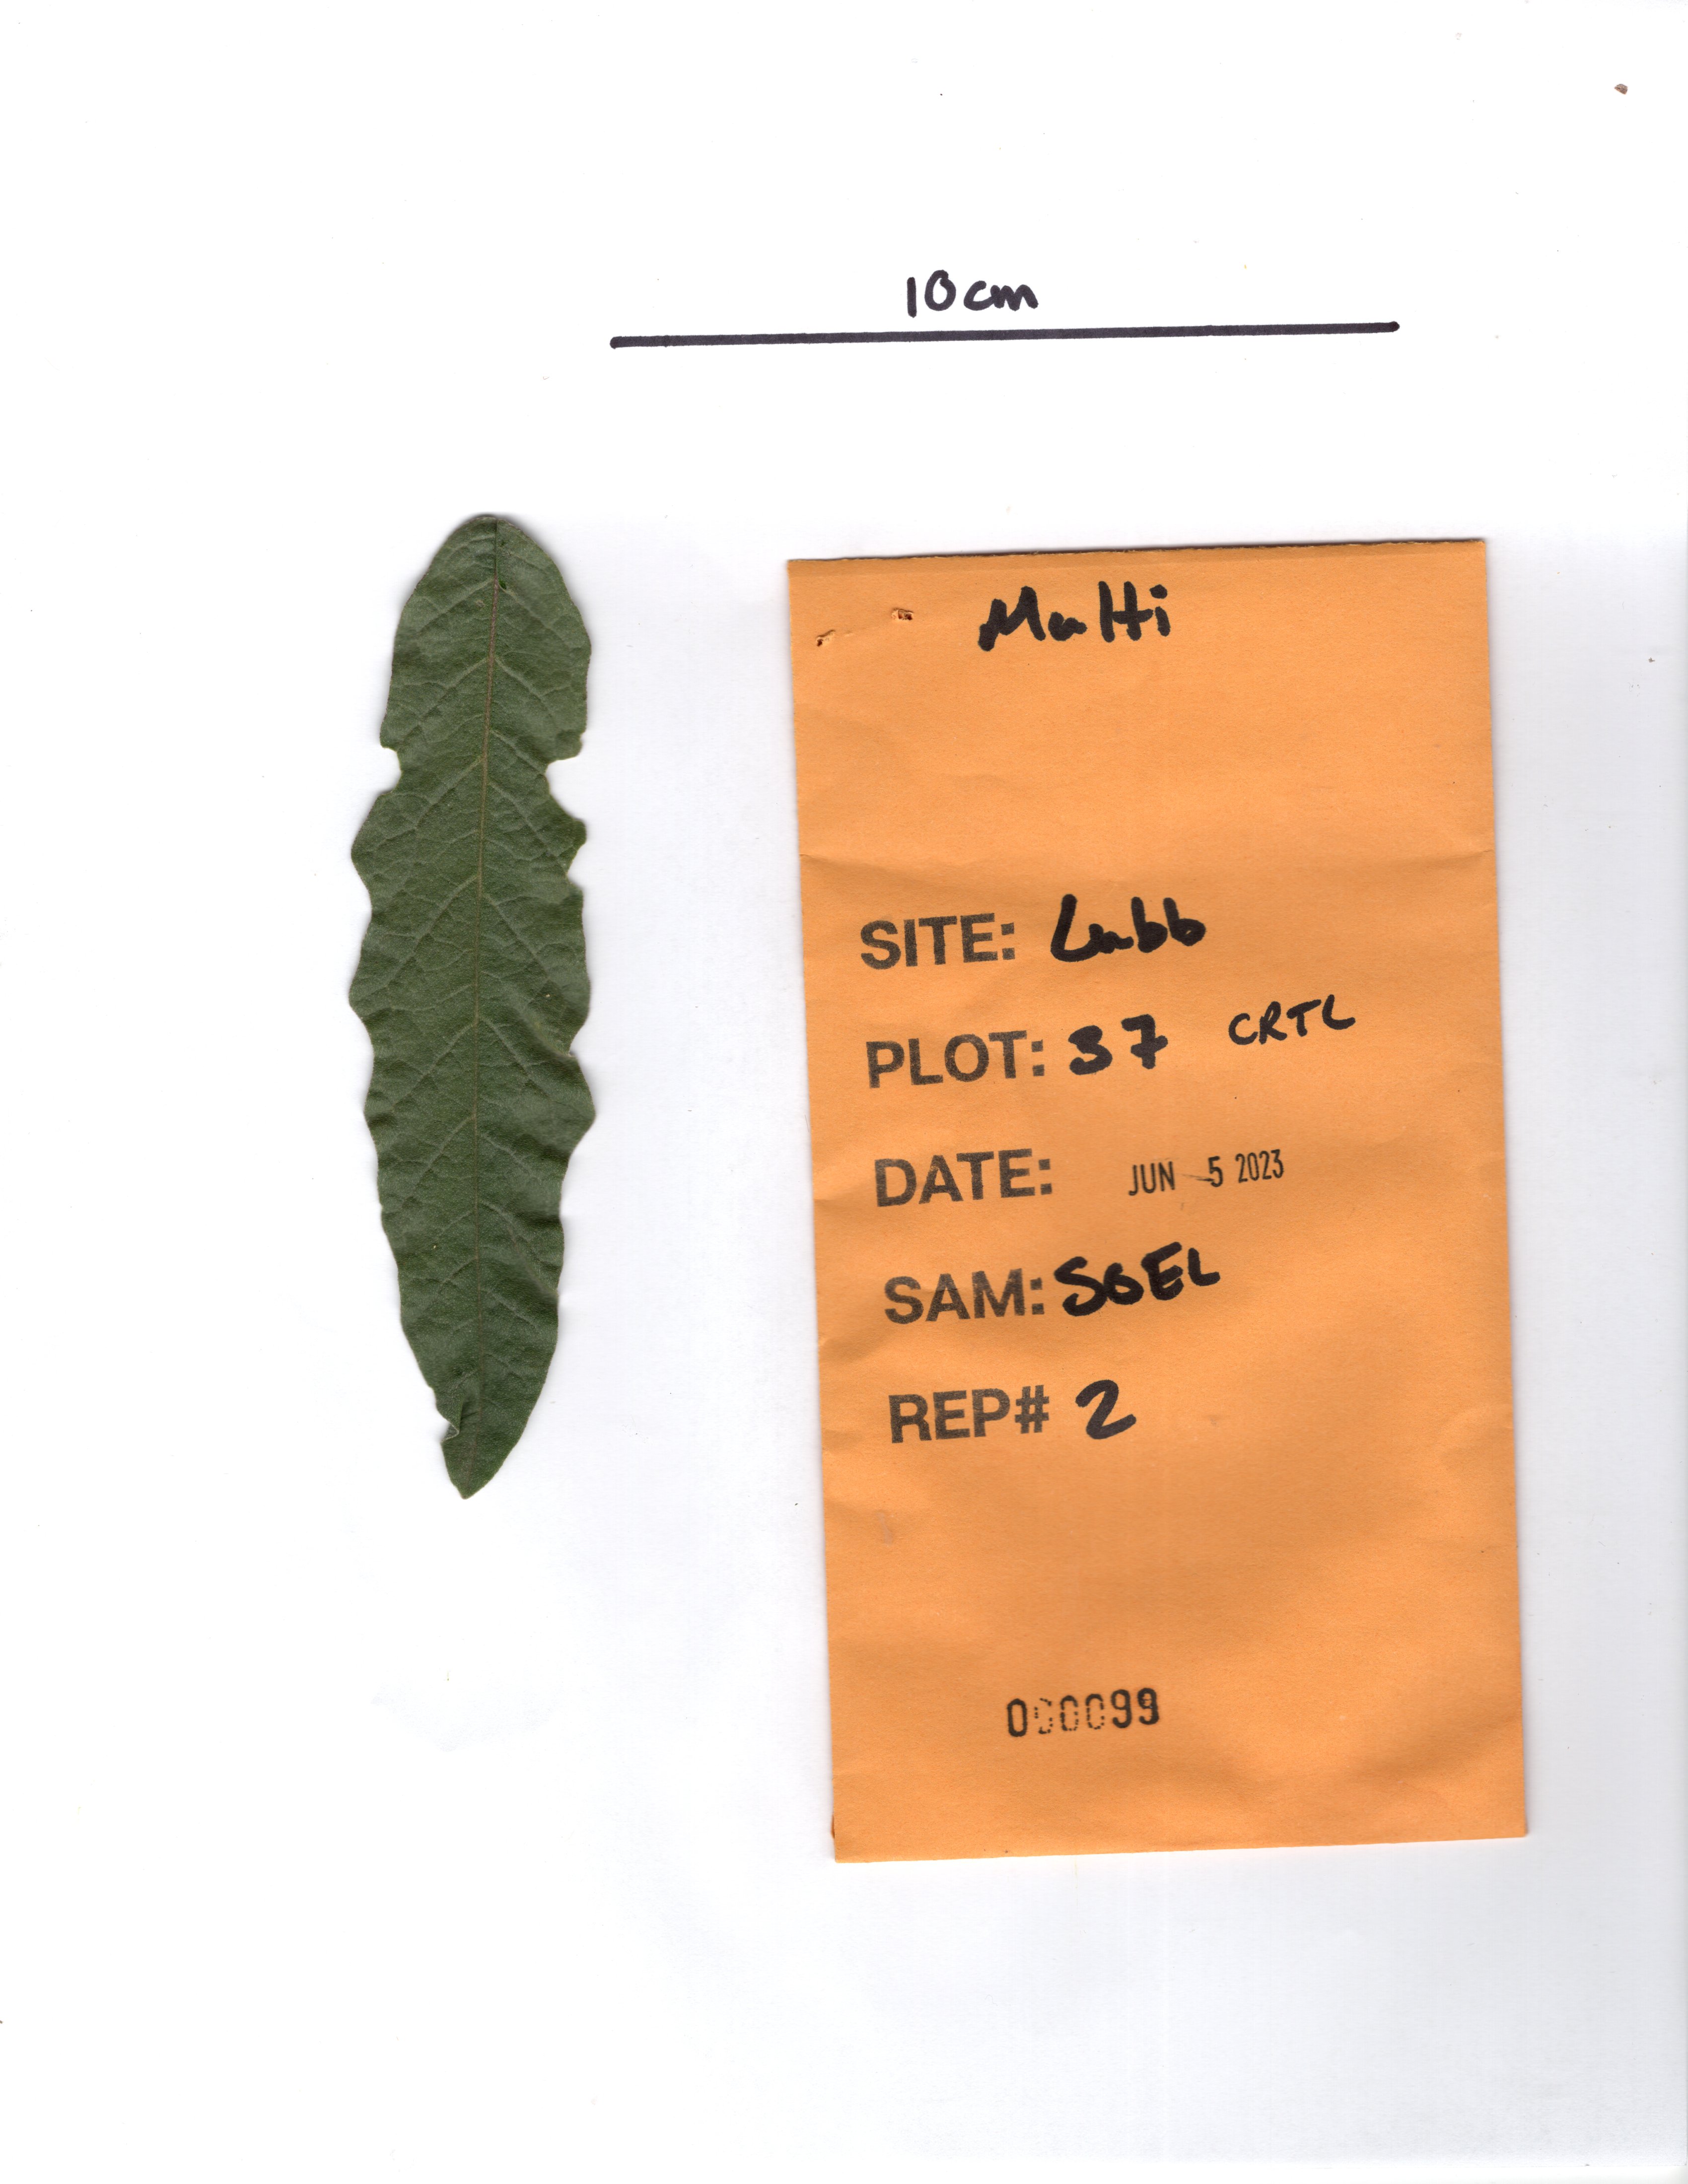 10cm
Multi
SITE: Lubb
PLOT: 37 CRTL
DATE: JUN 5 2023
SAM: SOEL
REP# 2
000099